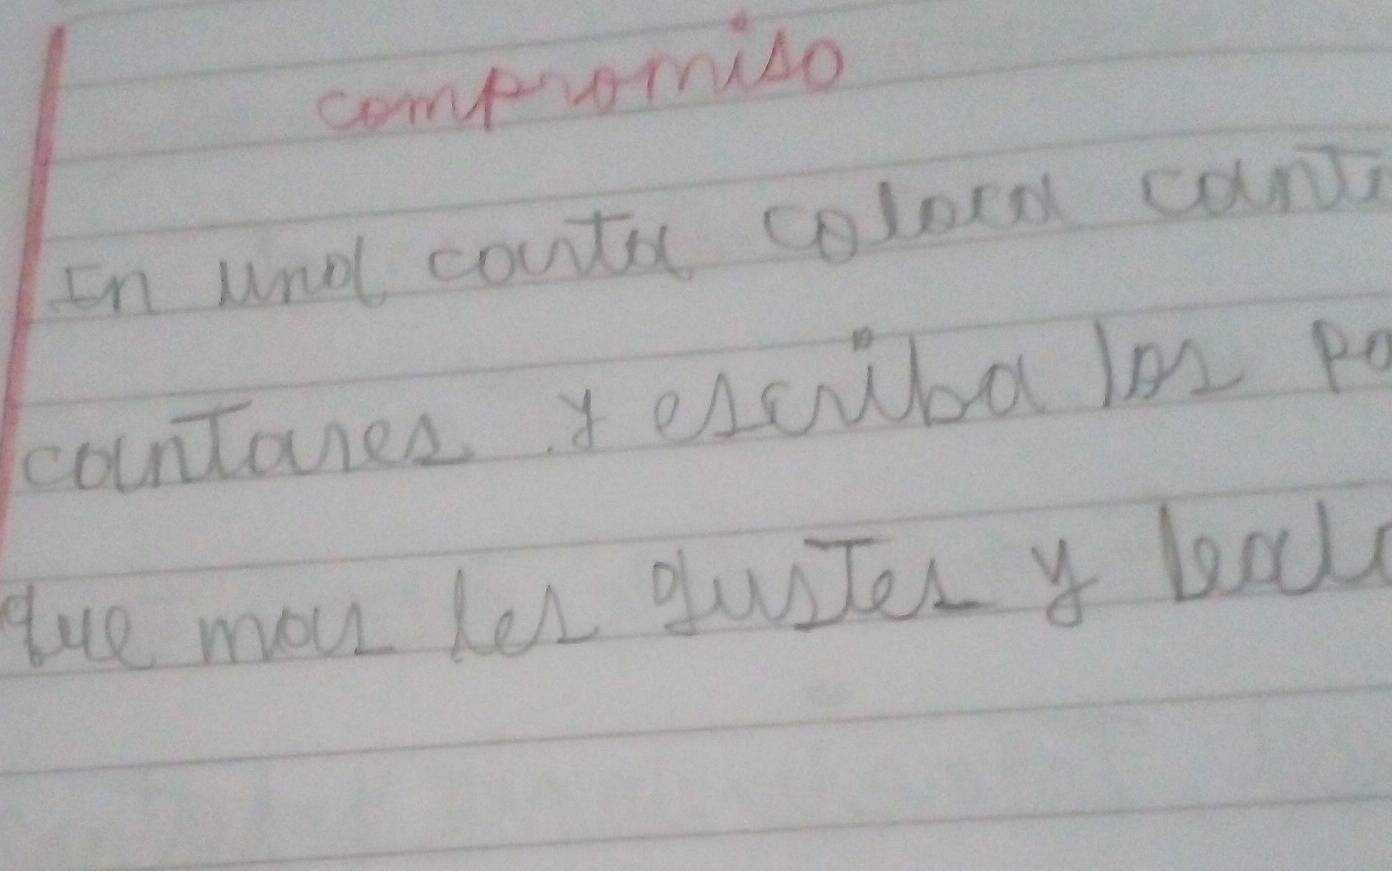 compromiso
En una carta coloca canti
cantares y escriba los po
que mas les gustes y leal